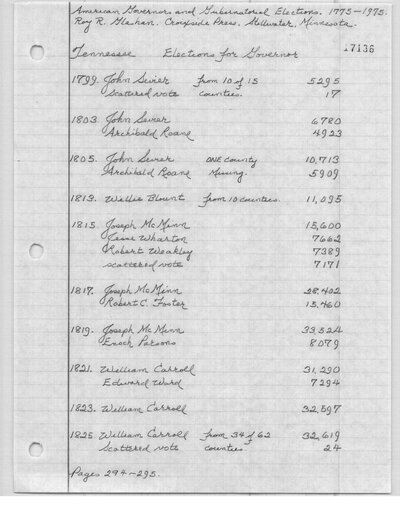 American Governors and Gubernatorial Elections. 1775-1975.
Roy R. Glashan. Croixside Press, Stillwater, Minnesota.
Tennessee Elections for Governor 17136
1799. John Sevier from 10 of 15 5295
Scattered vote counties. 17
1803. John Sevier 6780
Archibald Roane 4923
1805. John Sevier ONE county 10,713
Archibald Roane Missing. 5909
1813. Willie Blount from 10 counties. 11,095
1815. Joseph McMinn 15,600
Jesse Wharton 7662
Robert Weakley 7389
scattered vote 7171
1817. Joseph McMinn 28,402
Robert C. Foster 15,460
1819. Joseph McMinn 33,524
Enoch Parsons 8079
1821. William Carroll 31,290
Edward Ward 7294
1823. William Carroll 32,597
1825 William Carroll from 34 of 62 32,619
Scattered vote counties 24
Pages 294-295.